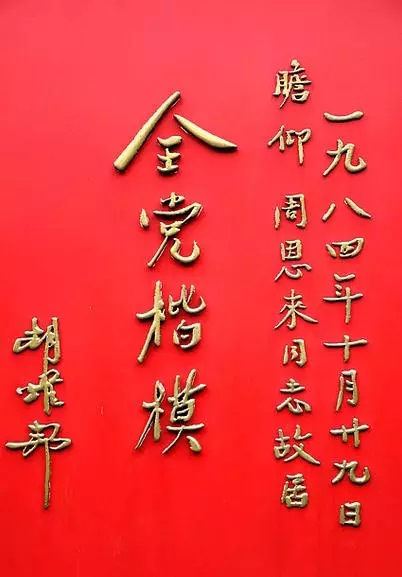 一九八四年十月廿九日
瞻仰周恩来同志故居
全党楷模
胡耀邦